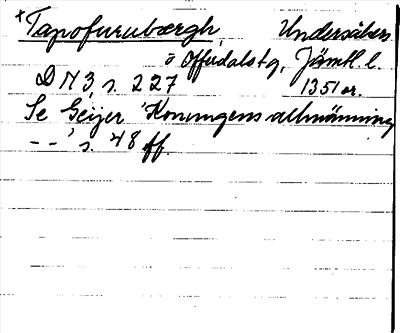 +Tapofurubærgh, Undersåkers
o Offerdals tg, Jämtl. l.
DN 3, s. 227 1351 or.
Se Geijer Konungens allmänning
- - ' s. 48 ff.